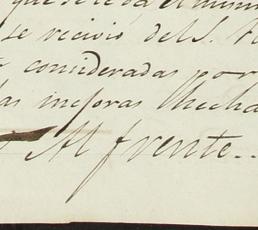 que se le da el mism
se recivió del S. 
consideradas por
las mejoras Checha
Al frente..